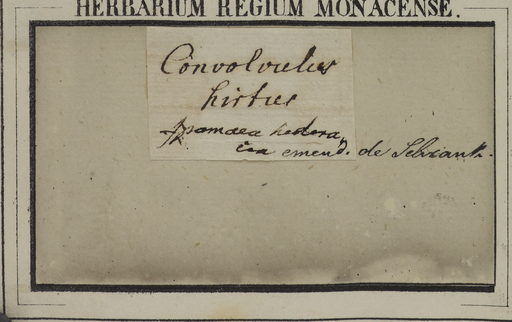 HERBARIUM REGIUM MONACENSE.
Convolvulus
hirtus
Ipomaea hedera,,
cea emend. de Schrank.